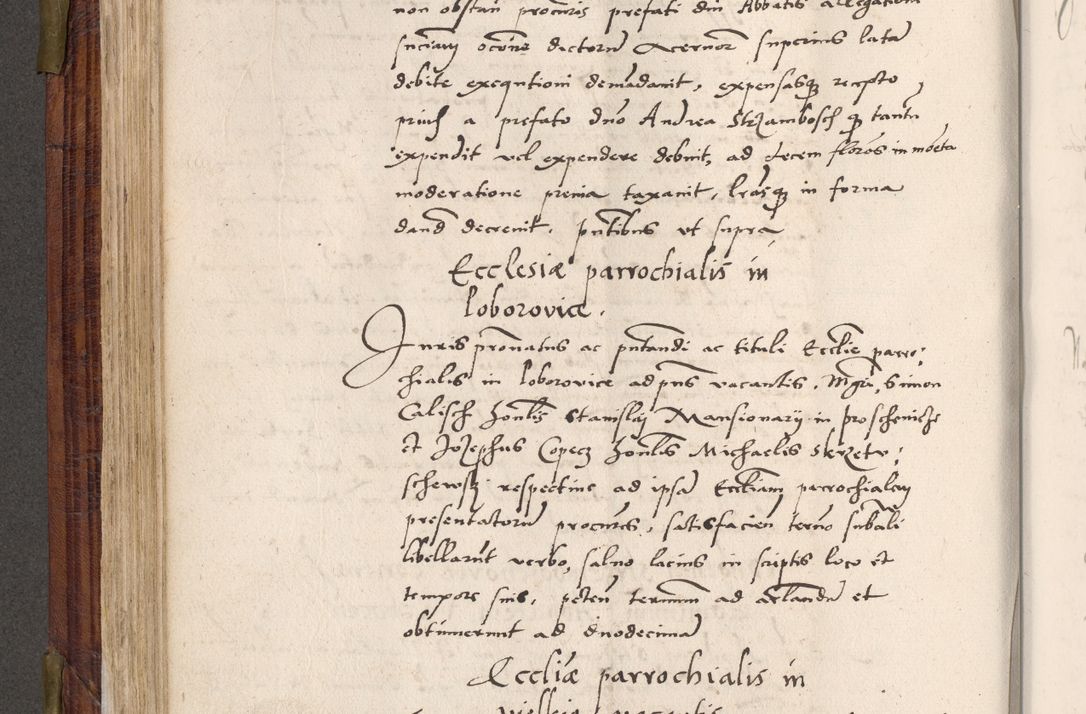 non obstan procuris prefati dni Abbatis allegationi
snciam ocons dictorum Acernorum superius lata
debite exequtioni demandauit, expensasque recepto
prius a prefato dno Andrea Strzambosch quod tantum
expendit vel expendere debuit, ad decem flores in moneta
moderatione preuia taxauit, lrasque in forma
dand decreuit, pntibus vt supra
Ecclesiæ parrochialis in
loborovice.
Iuris pronatus ac pntandi ac tituli Ecclie parro:
chialis in loborovice ad pns vacantis, Mgri, Simon
Calisch honlis Stanislaj Mansionarij in proschenicze
et Jozephus Copecz honlis Michaelis Skrzetu:
schewskj respectiue ad ipsam Eccliam parrochialem
presentatorum procures, satisfacien termo substali
libellarunt verbo, saluo lacius in scriptis loco et
tempore suis, peten terminum ad articulandum et
obtinuerunt ad duodecimam
Eccliæ parrochialis in
vacantis